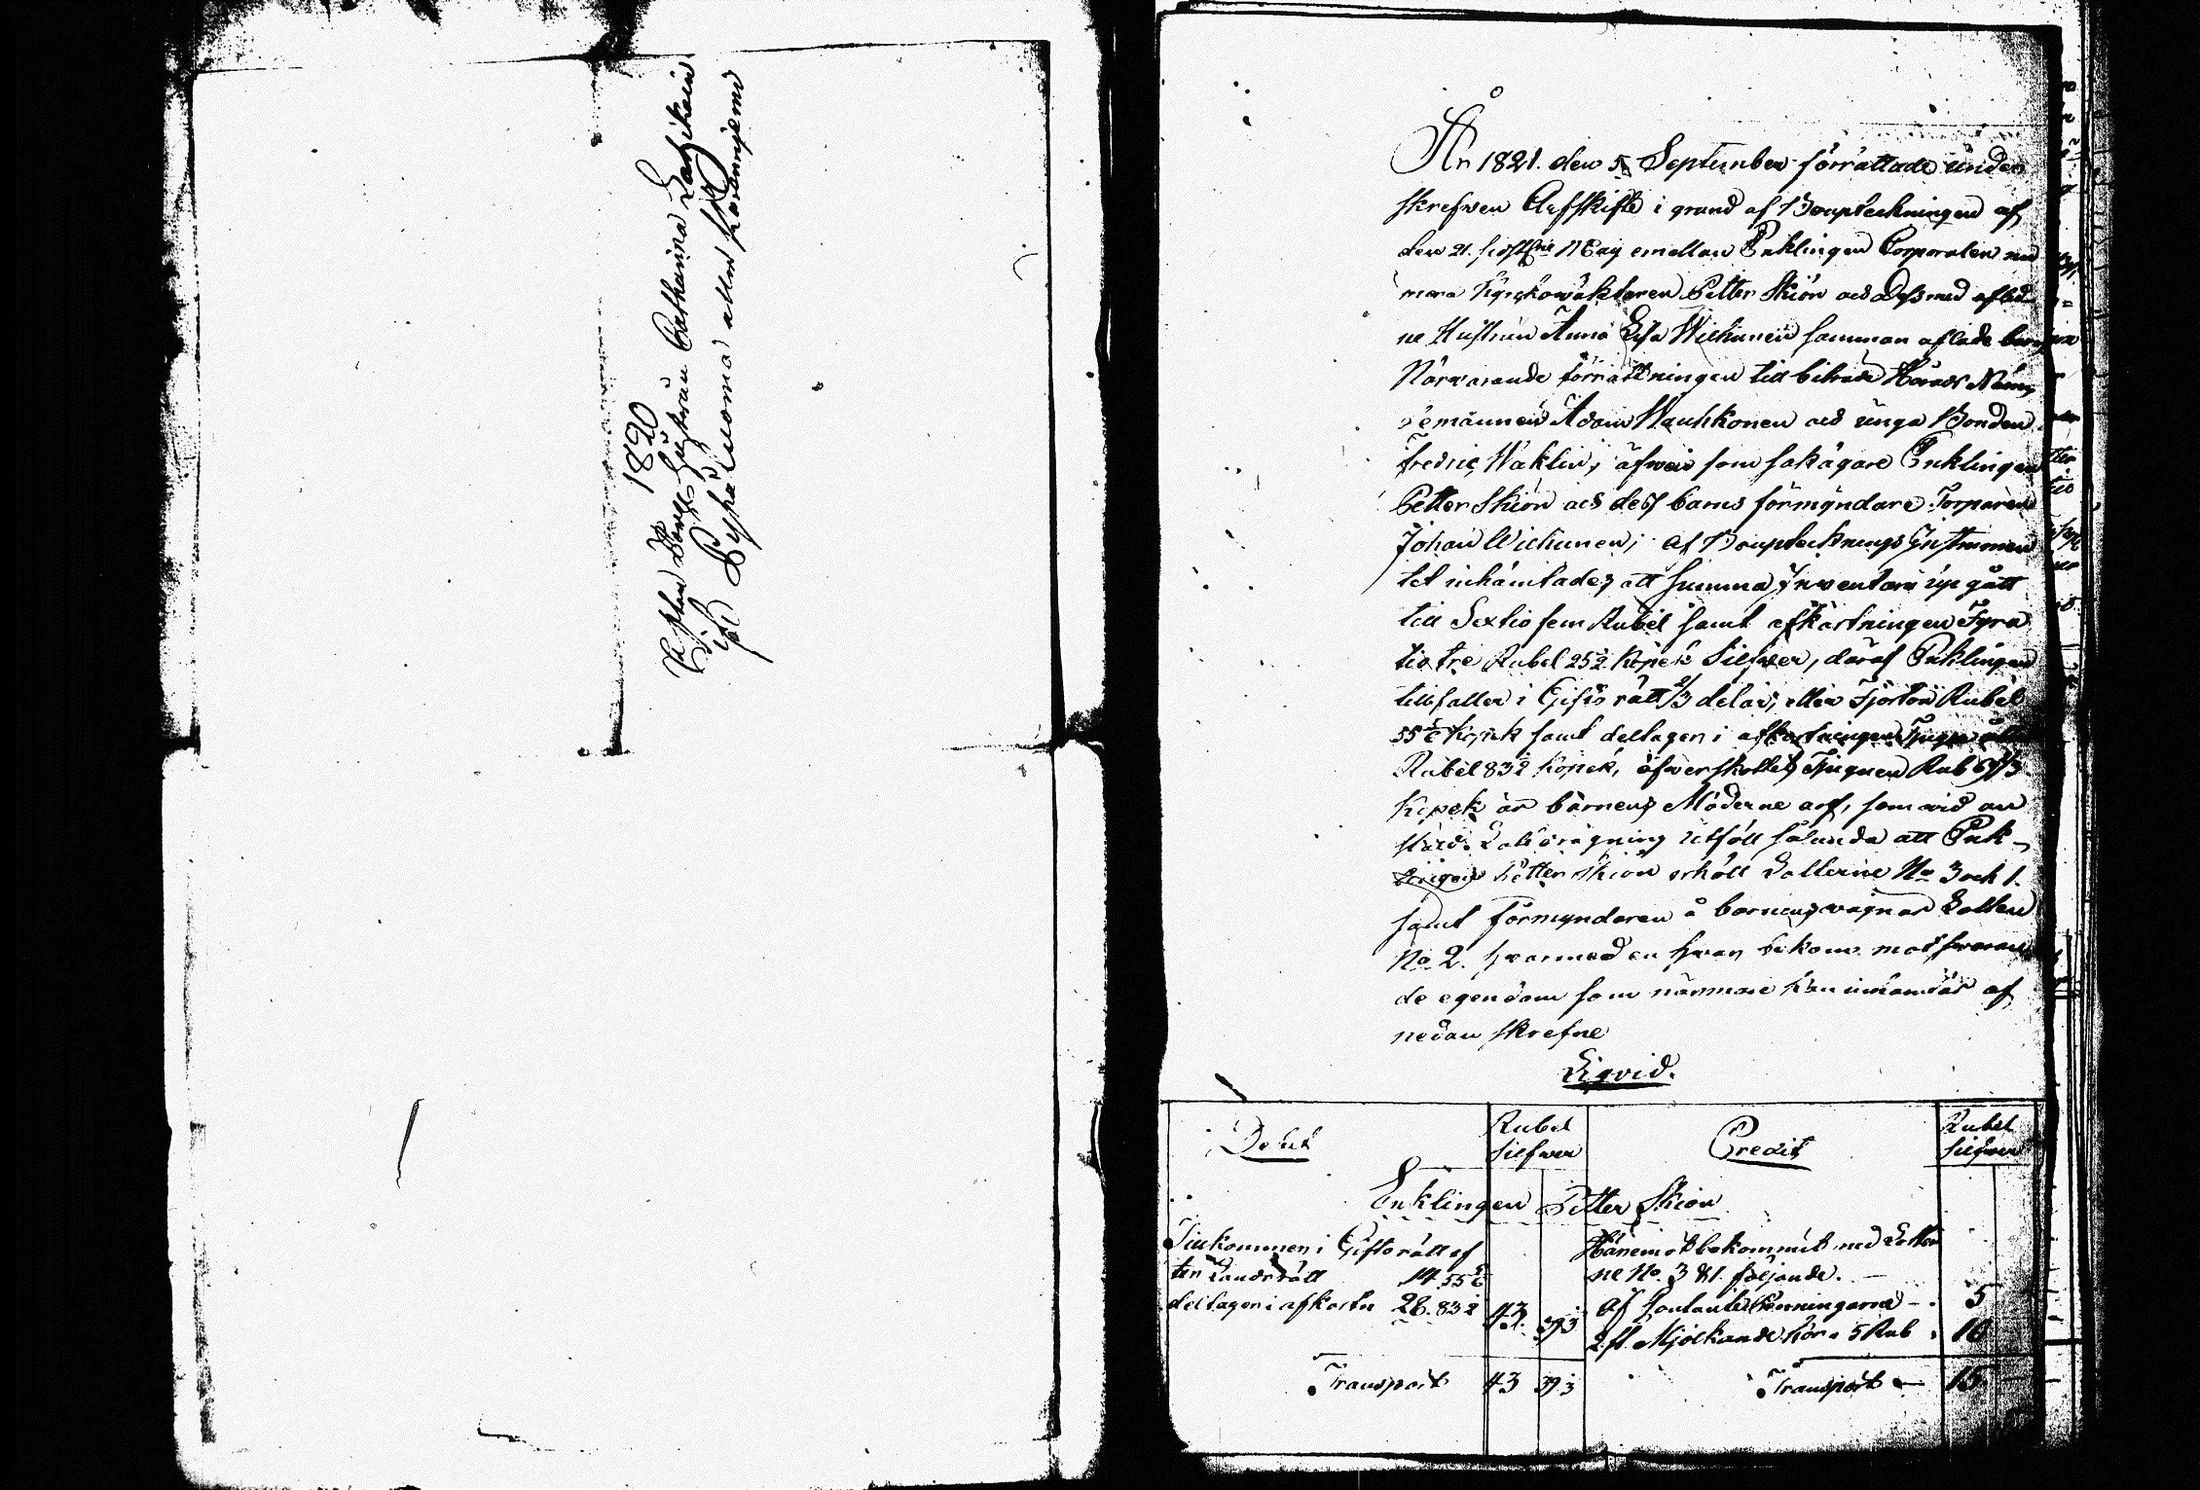 1820
Efter Bonde Hustrun Catharina
ifrån Pyhä Luoma eller Harjunjemi
År 1821. den 5 September förrättade under
skrefwen Arfskifte i grund af Bouptekningen af
den 21. sistl:ne Maij emellan Enklingen Corporalen nu
mera Kyrkowäktaren Petter Skiön och dess med aflid
ne Hustrun Anna Lisa Wichunen samman aflade barn
Närwarande förrättningen till biträde Härads Nämn
demannen Adam Wauhkonen och unga Bonden
Fredric Waklin, äfwen som sakägare Enklingen
Petter Skiön och dess barns förmyndare Torparen
Johan Wichunen; Af Boupteknings Instrumen
tet inhämtades att Summa Inventarii up gått
till Sextiofem Rubel samt afkortningen Fyra
tio tre Rubel 25½ Kopek Silfwer, däraf Enklingen
tillfaller i Gifto rätt 2/3 delar, eller Fjorton Rubel
55 Kopek samt deltagen i afkortningen Tjugu åtta
Rubel 83½ Kopek, öfwerskottet Rub
Kopek är barnens Möderne arf, som wid an
stäld Lottdragning utföll sålunda att Enk-
lingen Petter Skiön erhöll Lotterne No 3 och 1.
samt Förmyndaren å barnens wägnar Lotten
No 2. hwarmed en hwar bekom motswaran
de egendom som närmare kan inhämtas af
nedan skrefne
Liqvid.
Debet Rubel Silfwer Credit Rubel Silfwer
Enklingen Petter Skiön
Tillkommen i Giftorätt ef Häremot bekommit med Lotter
ter Landsrätt 14 55 ne No. 3 & 1. följande.
deltagen i afkortn 28. 83½ 43. 39⅓ Af Contanta Penningarne 5
2 st. Mjölkande Kor a 5 Rub 10
Transport 43 39⅓ Transport 15